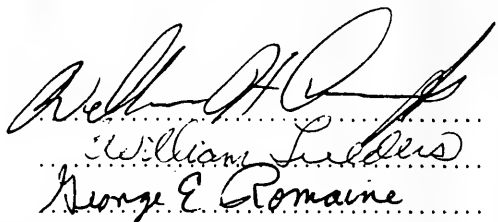 William H
William Lueders
George E. Romaine